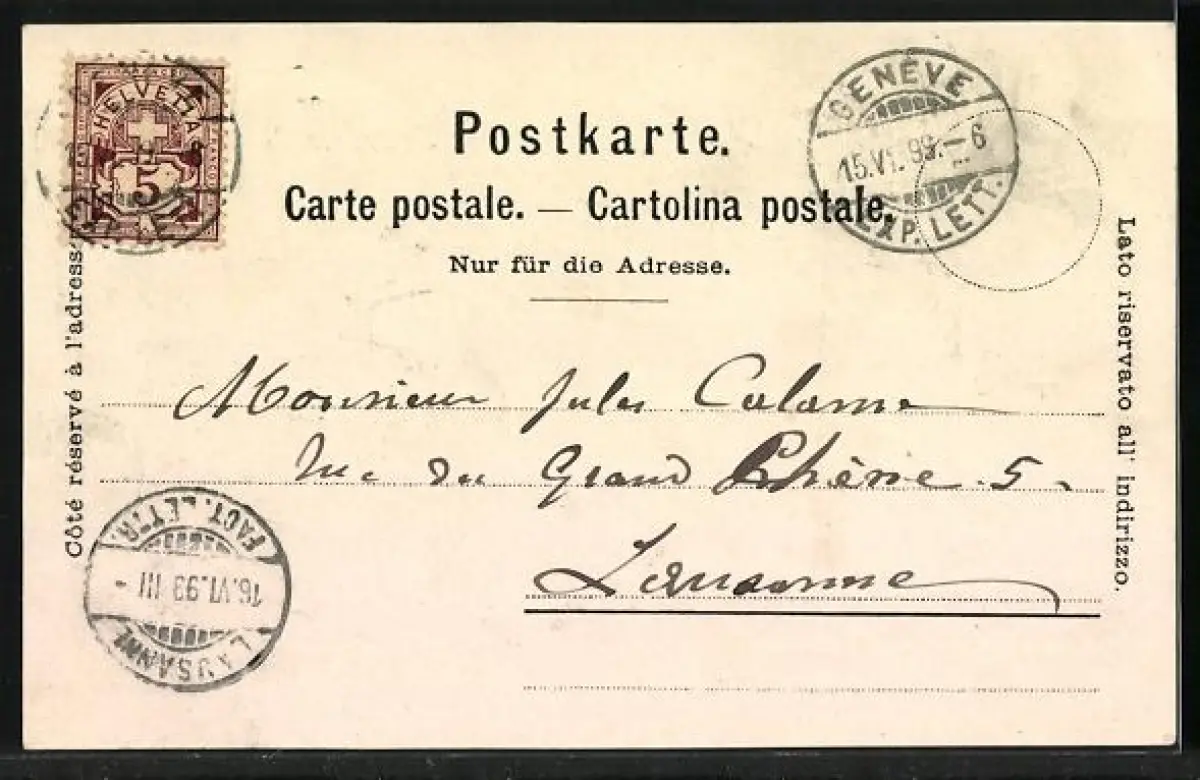 HELVETIA
5
FRANCO
Postkarte.
Carte postale. — Cartolina postale.
Nur für die Adresse.
GENÈVE
15.VI.99.–6
EXP. LETT.
Côté réservé à l'adresse
Lato riservato all' indirizzo.
Monsieur Jules Calame
rue du Grand Chêne 5.
Lausanne
LAUSANNE
16.VI.99 III -
FACT. LETTR.